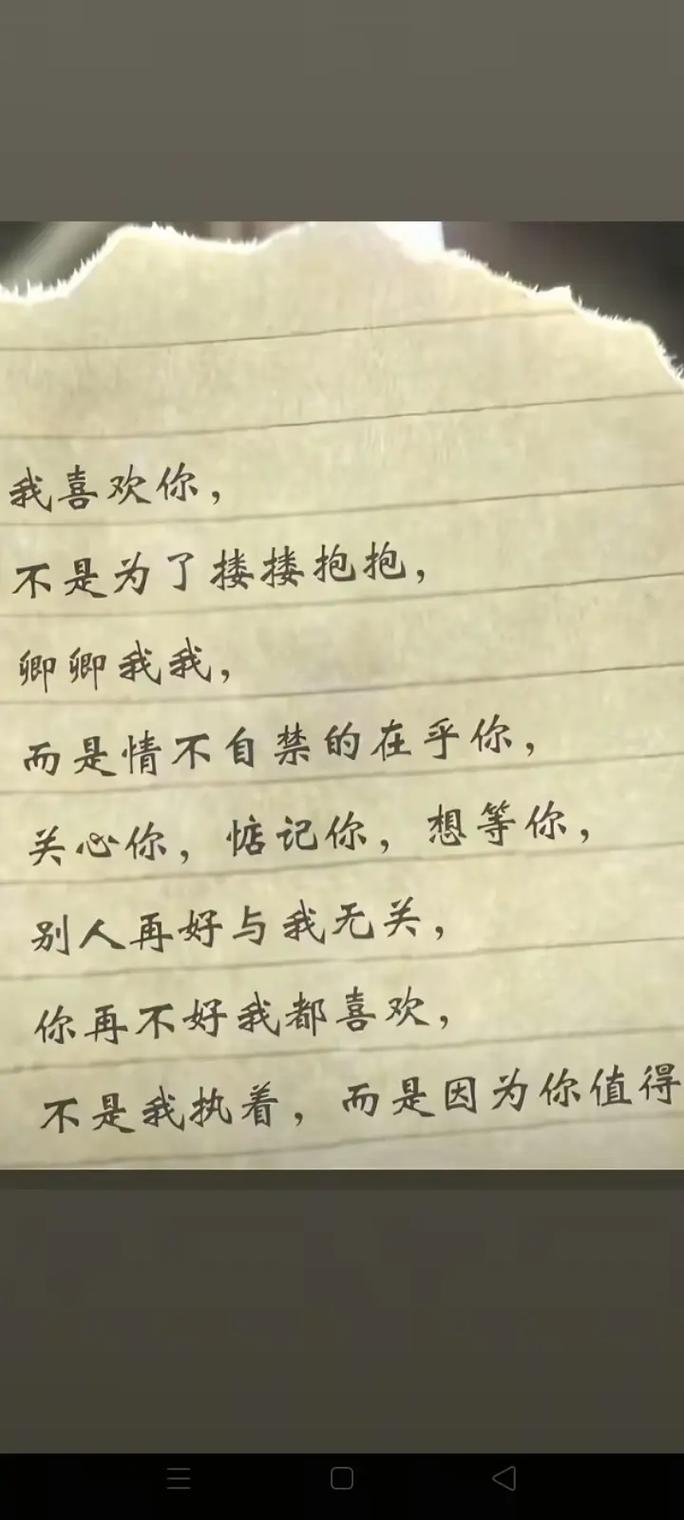 我喜欢你，
不是为了搂搂抱抱，
卿卿我我，
而是情不自禁的在乎你，
关心你，惦记你，想等你，
别人再好与我无关，
你再不好我都喜欢，
不是我执着，而是因为你值得